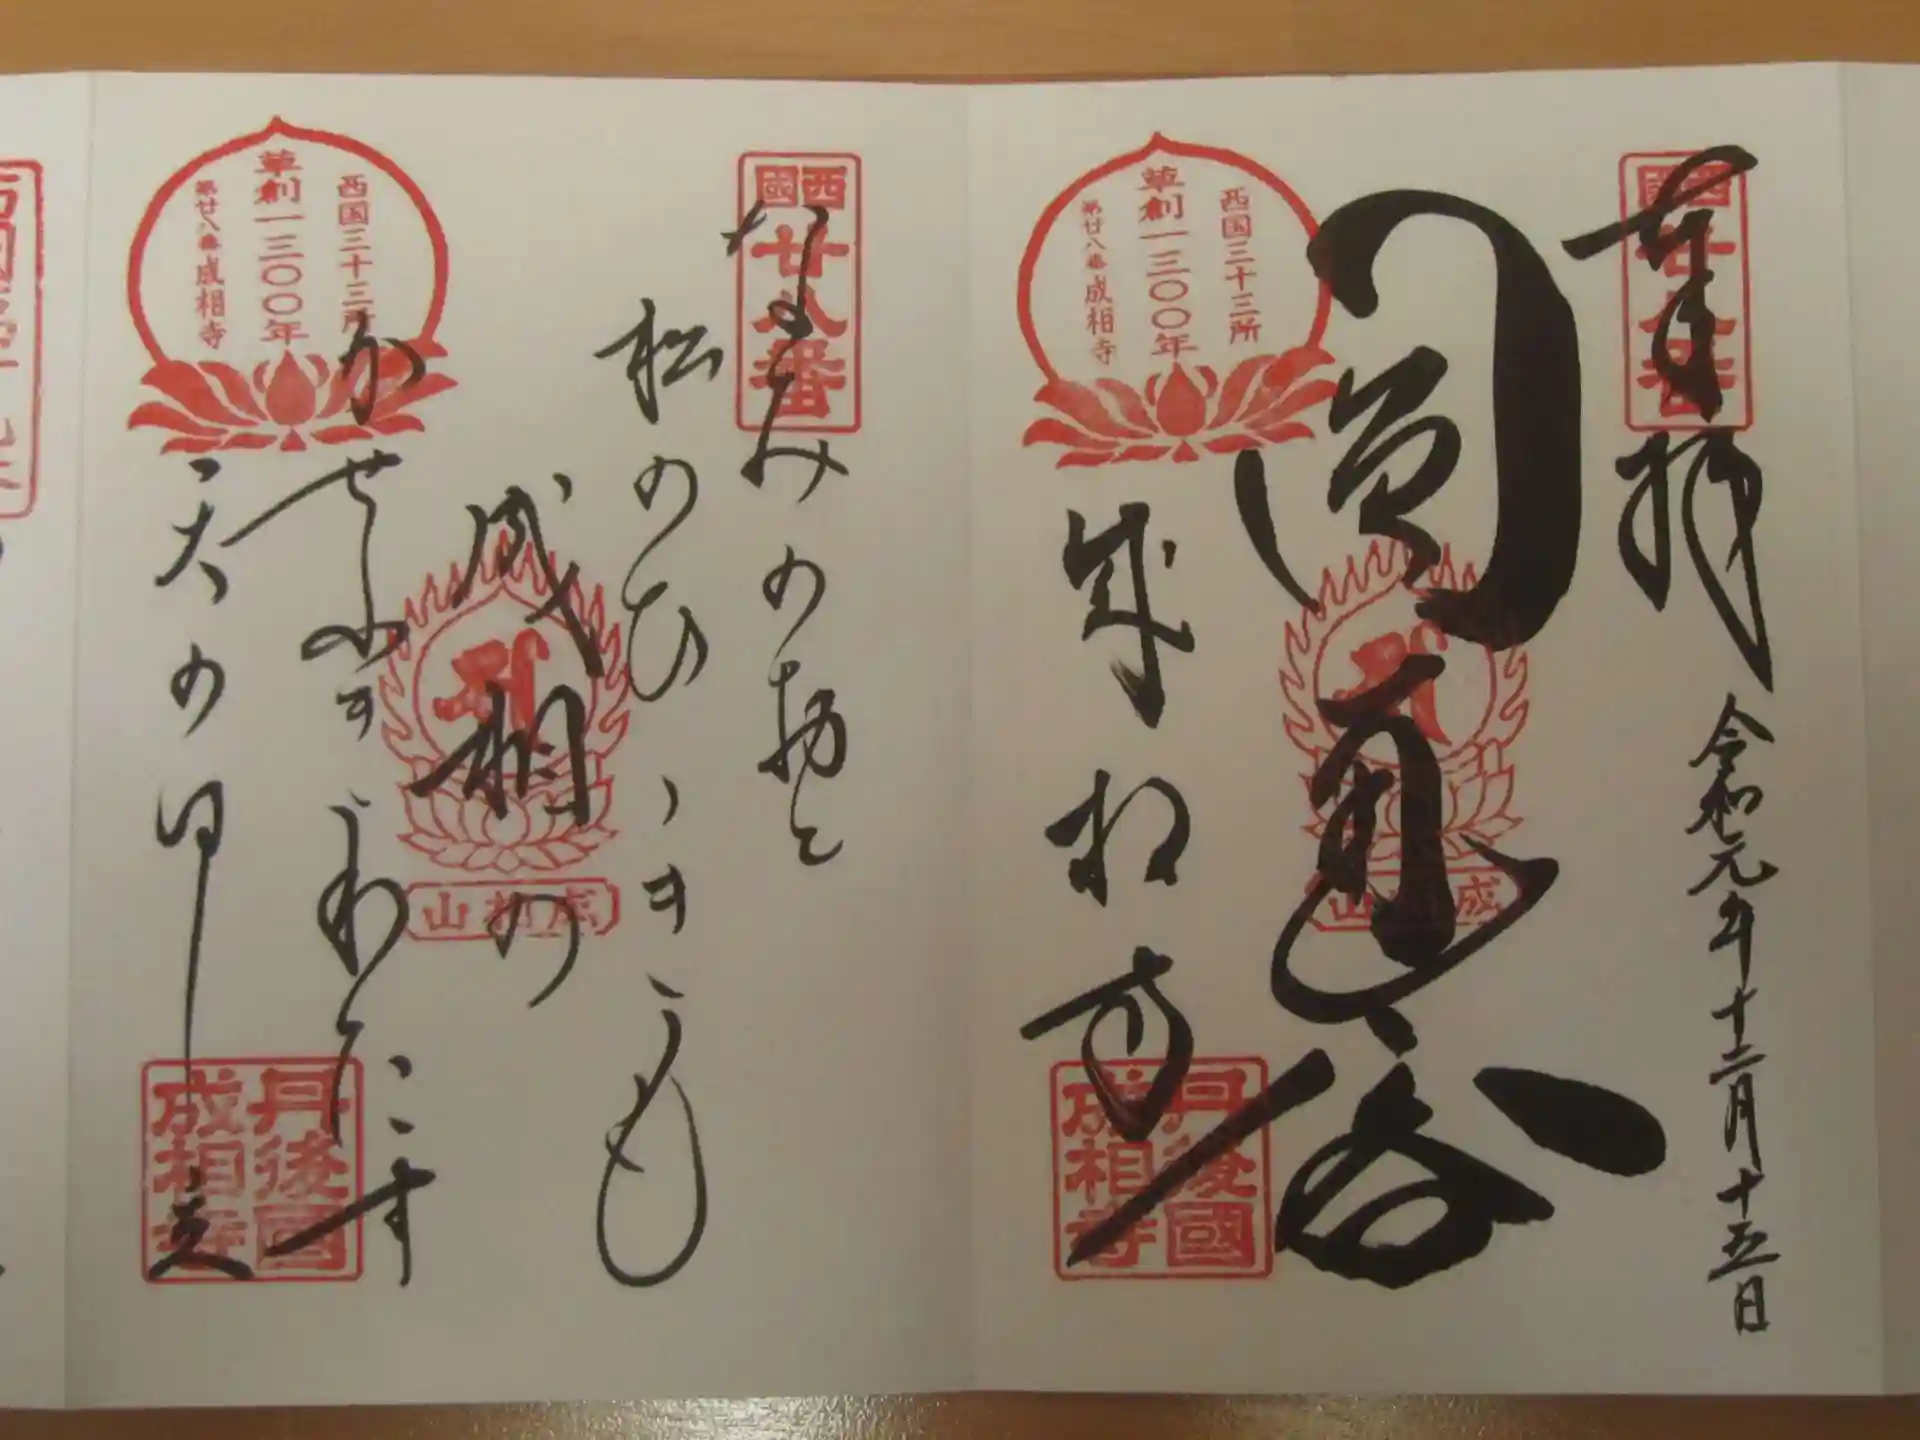 西國
廿八番
奉拝
令和元年十二月十五日
圓通
西国三十三所
草創一三〇〇年
第廿八番成相寺
成相山
成相寺
丹後國
成相寺
西國
廿八番
なみの於と
松のひゝきも
成相の
かせふきわたす
天のはし立
西国三十三所
草創一三〇〇年
第廿八番成相寺
成相山
丹後國
成相寺